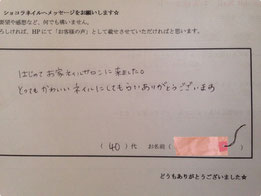 ショコラネイルへメッセージをお願いします☆
要望や感想など、何でも構いません。
ろしければ、HPにて「お客様の声」として載せさせていただければと思います。
はじめてお家ネイルサロンに来ました。
とってもかわいいネイルにしてもらいありがとうございます
(40)代 お名前(
どうもありがとうございました☆